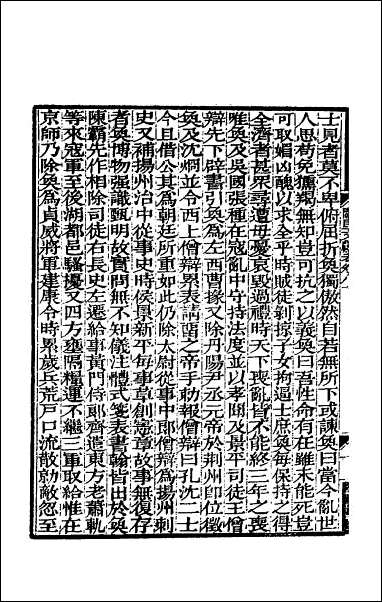 士見者莫不卑俯屈折奐獨傲然自若無所下或諫奐曰當今亂世
人思苟免獯羯無知豈可抗之以義奐曰吾性命有在雖未能死豈
可取媚凶醜以求全乎時賊徒剝掠子女拘逼士庶奐每保持之得
全濟者甚衆尋遭母憂哀毀過禮時天下喪亂皆不能終三年之喪
唯奐及吳國張種在寇亂中守持法度並以孝聞及景平司徒王僧
辯先下辟書引奐爲左西曹掾又除丹陽尹丞元帝於荆州卽位徵
奐及沈炯並令西上僧辯累表請留之帝手勅報僧辯曰孔沈二士
今且借公其爲朝廷所重如此仍除太尉從事中郎僧辯爲揚州刺
史又補揚州治中從事史時侯景新平每事草創憲章故事無復存
者奐博物强識甄明故實問無不知儀注體式箋表書翰皆出於奐
陳霸先作相除司徒右長史左遷給事黃門侍郎齊遣東方老蕭軌
等來寇軍至後湖都邑騷擾又四方壅隔糧運不繼三軍取給惟在
京師乃除奐爲貞威將軍建康令時累歲兵荒戶口流散勍敵忽至